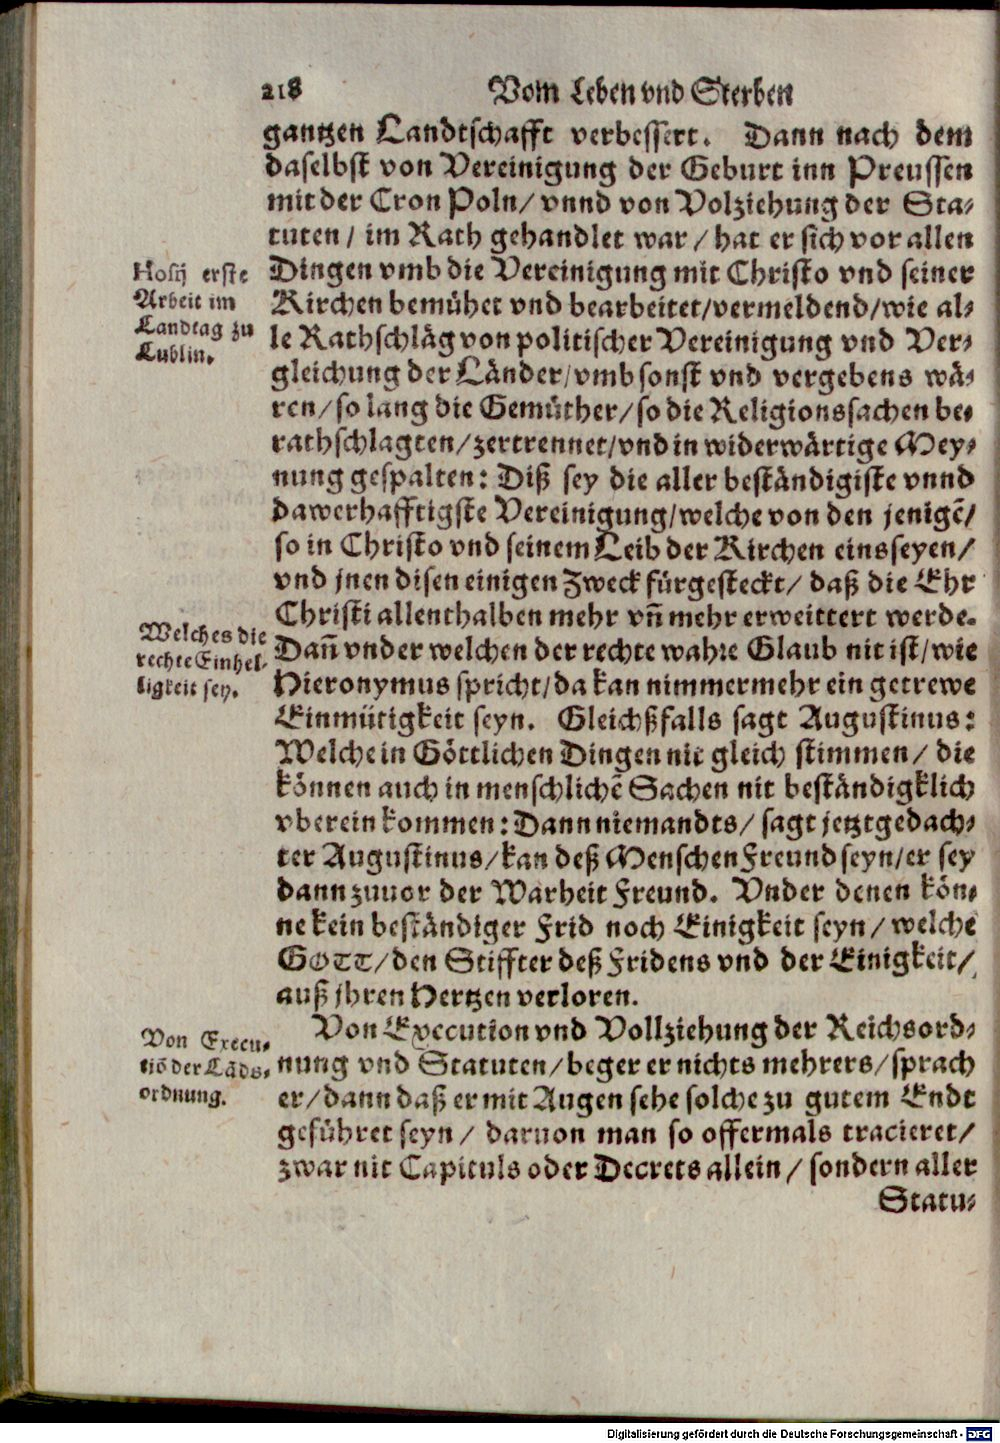 218 Vom Leben vnd Sterben
gantzen Landtschafft verbessert. Dann nach dem
daselbst von Vereinigung der Geburt inn Preussen
mit der Cron Poln/ vnnd von Volziehung der Sta-
tuten/ im Rath gehandlet war/ hat er sich vor allen
Hosij erste
Arbeit im
Landtag zu
Lublin.
Dingen vmb die Vereinigung mit Christo vnd seiner
Kirchen bemühet vnd bearbeitet/vermeldend/wie al-
le Rathschläg von politischer Vereinigung vnd Ver-
gleichung der Länder/vmb sonst vnd vergebens wä-
ren/so lang die Gemüther/so die Religionssachen be-
rathschlagten/zertrennet/vnd in widerwärtige Mey-
nung gespalten: Diß sey die aller beständigiste vnnd
dawerhafftigste Vereinigung/welche von den jenigẽ/
so in Christo vnd seinem Leib der Kirchen eins seyen/
vnd jnen disen einigen Zweck fürgesteckt/ daß die Ehr
Christi allenthalben mehr vñ mehr erweittert werde.
Welches die
rechte Einhel-
ligkeit sey.
Dañ vnder welchen der rechte wahre Glaub nit ist/wie
Hieronymus spricht/da kan nimmermehr ein getrewe
Einmütigkeit seyn. Gleichßfalls sagt Augustinus:
Welche in Göttlichen Dingen nit gleich stimmen/ die
können auch in menschlichẽ Sachen nit beständigklich
vberein kommen: Dann niemandts/ sagt jetztgedach-
ter Augustinus/kan deß Menschen Freund seyn/er sey
dann zuuor der Warheit Freund. Vnder denen kön-
ne kein beständiger Frid noch Einigkeit seyn/ welche
GOTT/den Stiffter deß Fridens vnd der Einigkeit/
auß jhren Hertzen verloren.
Von Execu-
tiõ der Lãds-
ordnung.
Von Execution vnd Vollziehung der Reichsord-
nung vnd Statuten/beger er nichts mehrers/sprach
er/dann daß er mit Augen sehe solche zu gutem Endt
geführet seyn/ daruon man so offermals tractieret/
zwar nit Capituls oder Decrets allein/ sondern aller
Statu-
Digitalisierung gefördert durch die Deutsche Forschungsgemeinschaft - DFG